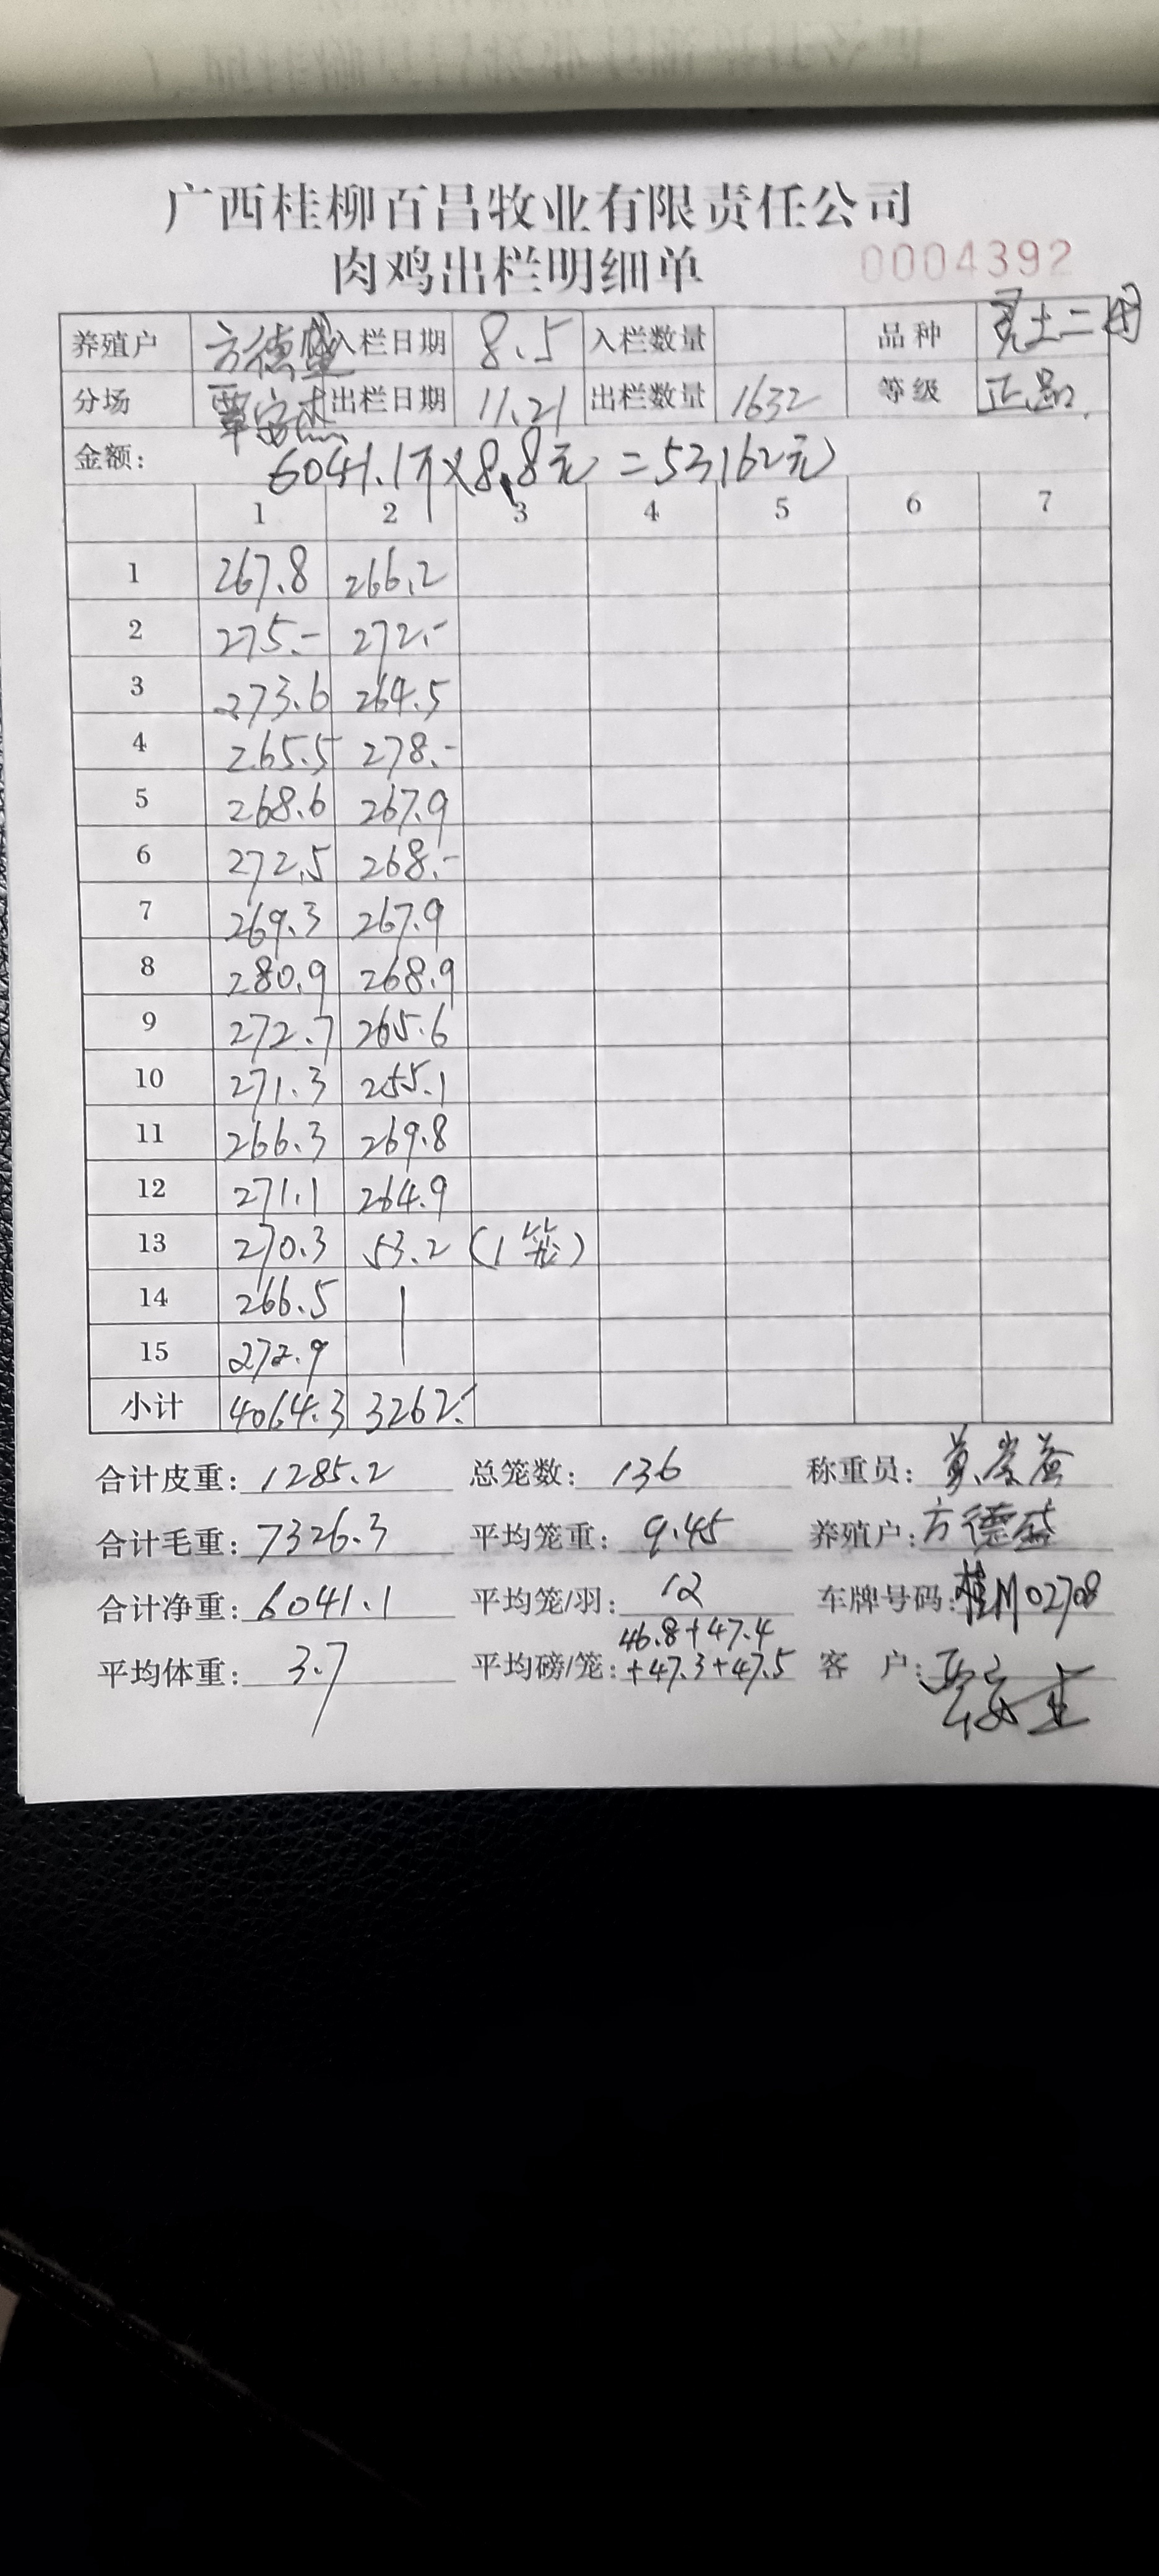 广西桂柳百昌牧业有限责任公司
肉鸡出栏明细单 0004392
养殖户 方德盛 入栏日期 8.5 入栏数量 品种 土二
分场 覃安杰 出栏日期 11.21 出栏数量 1632 等级 正品.
金额: 6041.1斤×8.8元=53162元
1 2 3 4 5 6 7
1 267.8 266.2
2 275.- 272.-
3 273.6 264.5
4 265.5 278.-
5 268.6 267.9
6 272.5 268.-
7 269.3 267.9
8 280.9 268.9
9 272.7 265.6
10 271.3 255.1
11 266.3 269.8
12 271.1 264.9
13 270.3 53.2 (1笼)
14 266.5
15 272.9
小计 4064.3 3262.-
合计皮重: 1285.2 总笼数: 136 称重员: 黄
合计毛重: 7326.3 平均笼重: 9.45 养殖户: 方德盛
合计净重: 6041.1 平均笼/羽: 12 车牌号码: 桂M02708
46.8+47.4
平均体重: 3.7 平均磅/笼: +47.3+47.5 客 户: